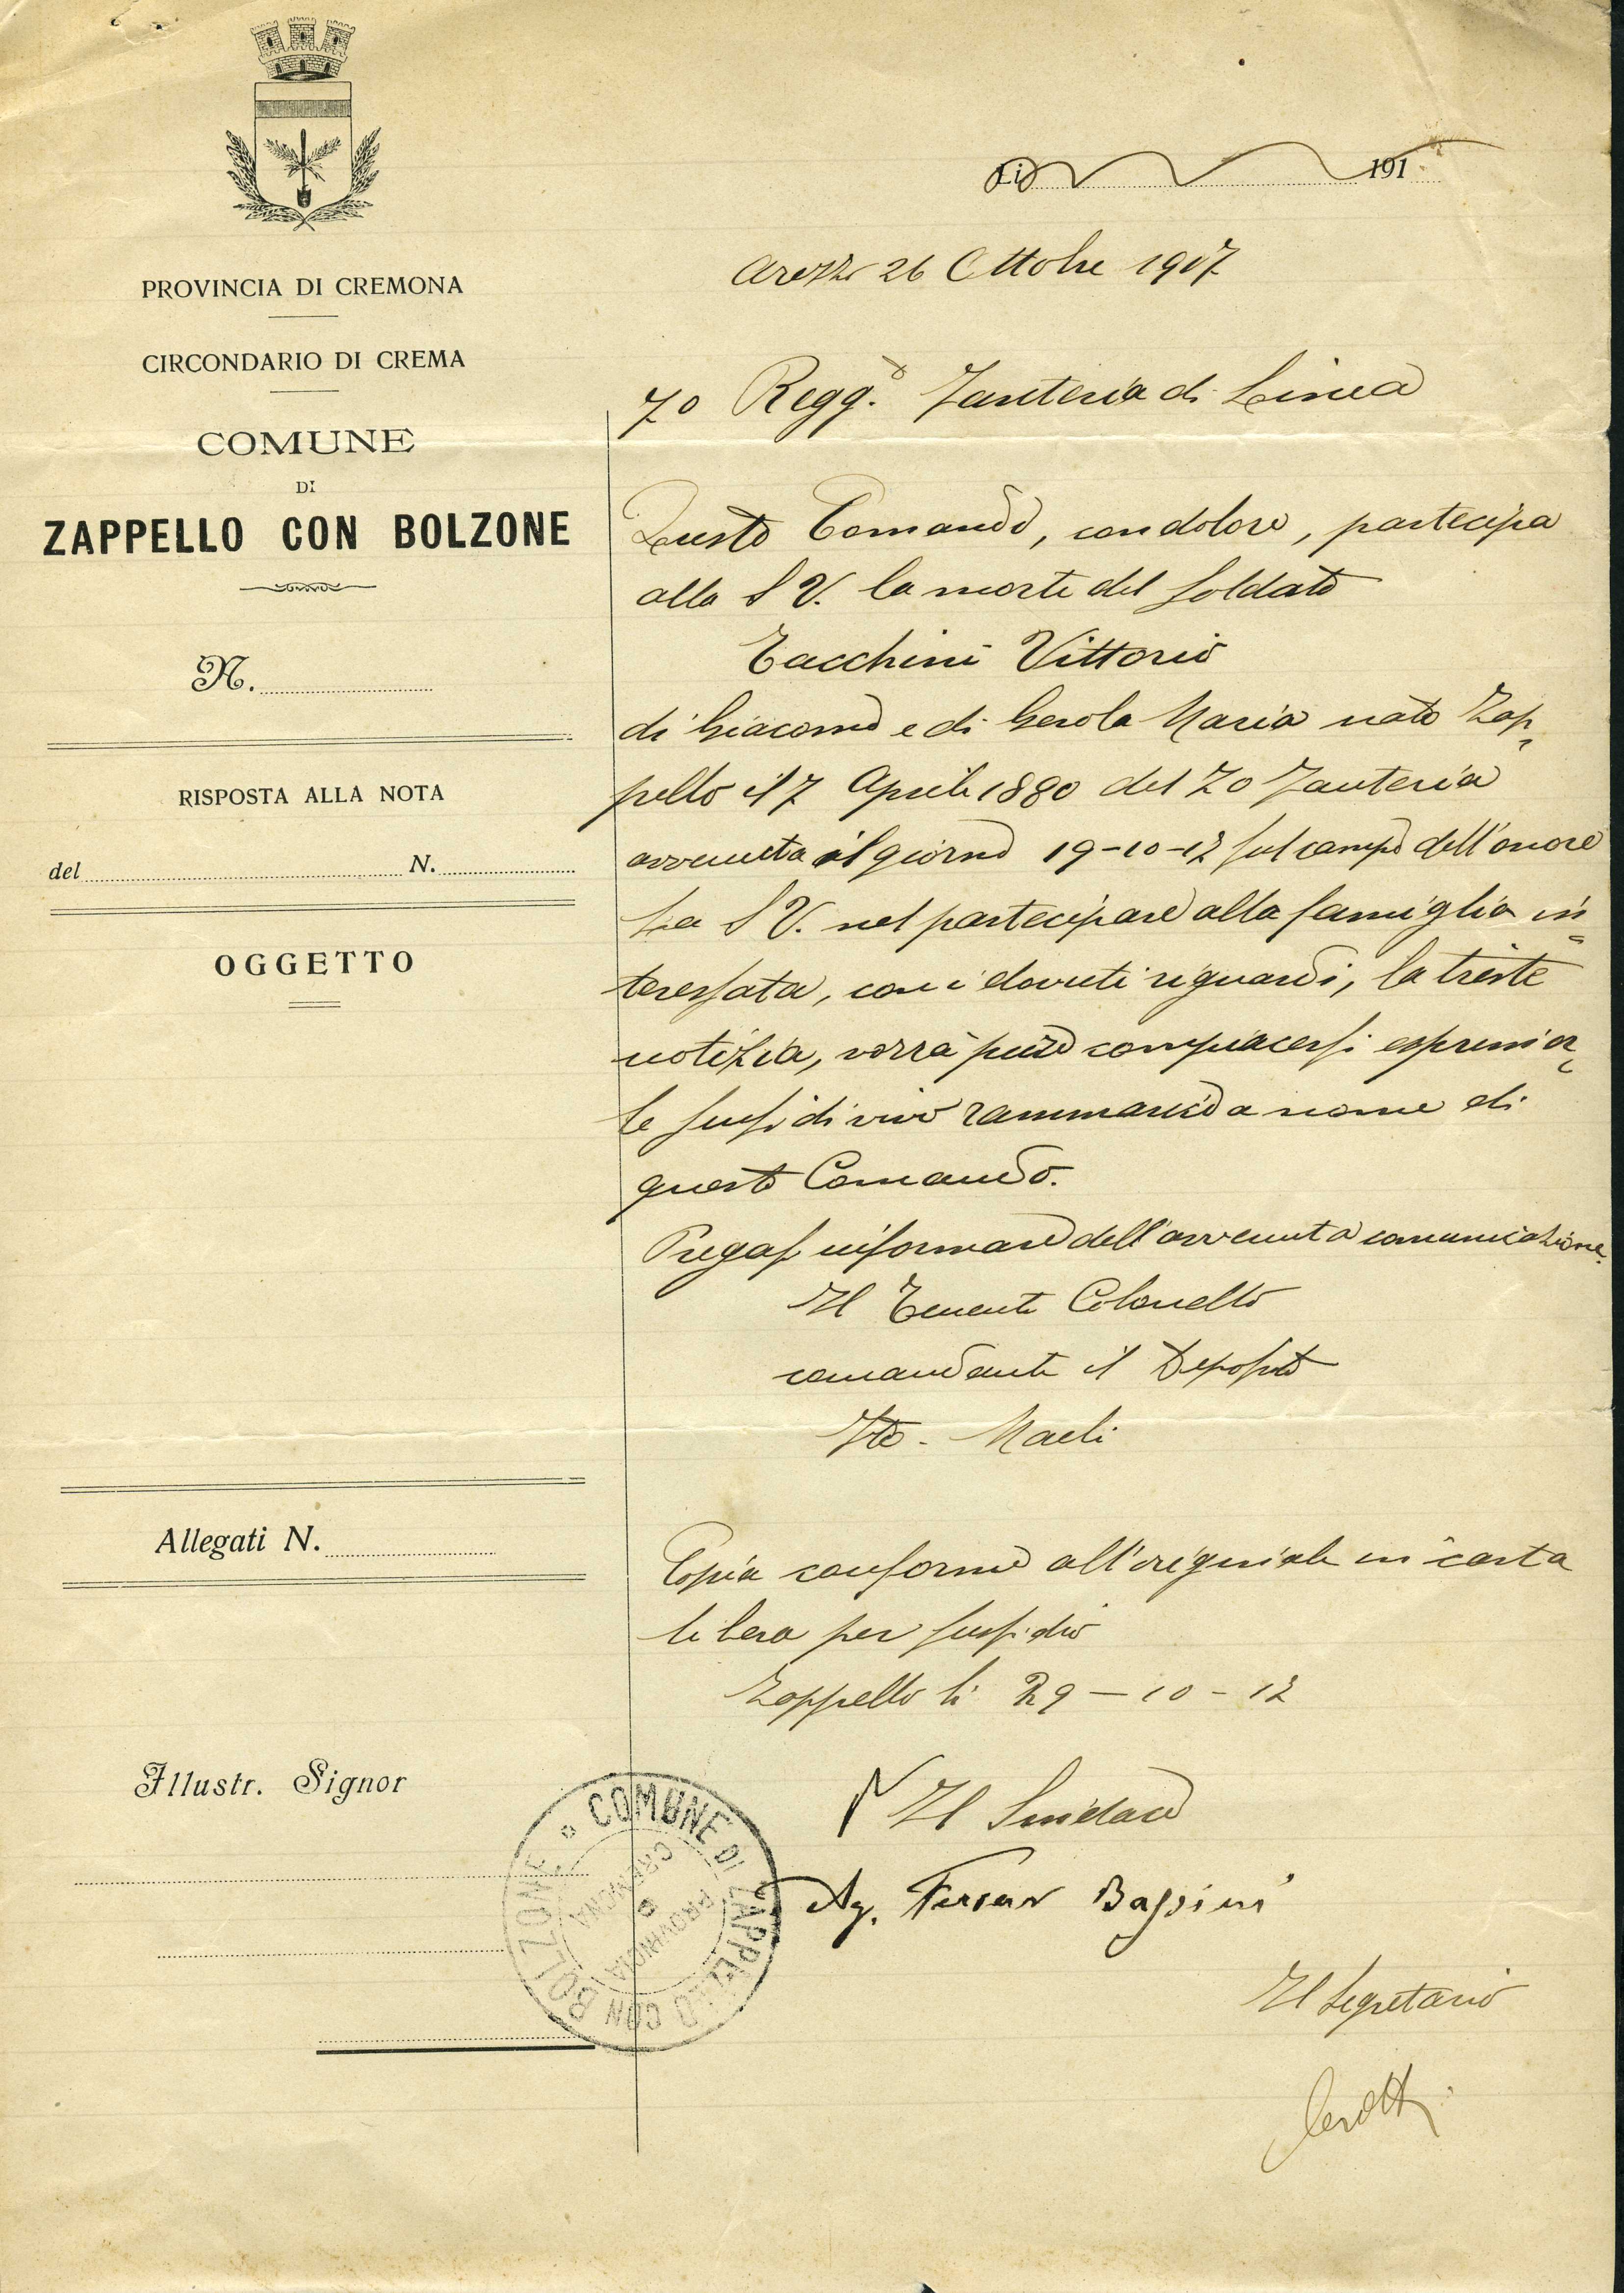 PROVINCIA DI CREMONA
CIRCONDARIO DI CREMA
COMUNE
DI
ZAPPELLO CON BOLZONE
N.
RISPOSTA ALLA NOTA
del N.
OGGETTO
Allegati N.
Illustr. Signor
Li 191
Arezzo 26 Ottobre 1917
70 Regg.o Fanteria di Linea
Questo Comando, con dolore, partecipa
alla S V. la morte del soldato
Tacchini Vittorio
di Giacomo e di Gerola Maria nato Zap=
pello il 7 Aprile 1880 del 70 Fanteria
avvenuta il giorno 19-10-17 sul campo dell'onore
La S V. nel partecipare alla famiglia in=
teressata, con i dovuti riguardi, la triste
notizia, vorrà pure compiacersi esprimer=
le sensi di vivo rammarico a nome di
questo Comando.
Pregasi informare dell'avvenuta comunicazione.
Il Tenente Colonello
comandante il Deposito
Fto. Maeli
Copia conforme all'originale in carta
libera per sussidio
Zappello li 29-10-17
Il Sindaco
Ag. Bassini
Il Segretario
COMUNE DI ZAPPELLO CON BOLZONE
PROVINCIA CREMONA